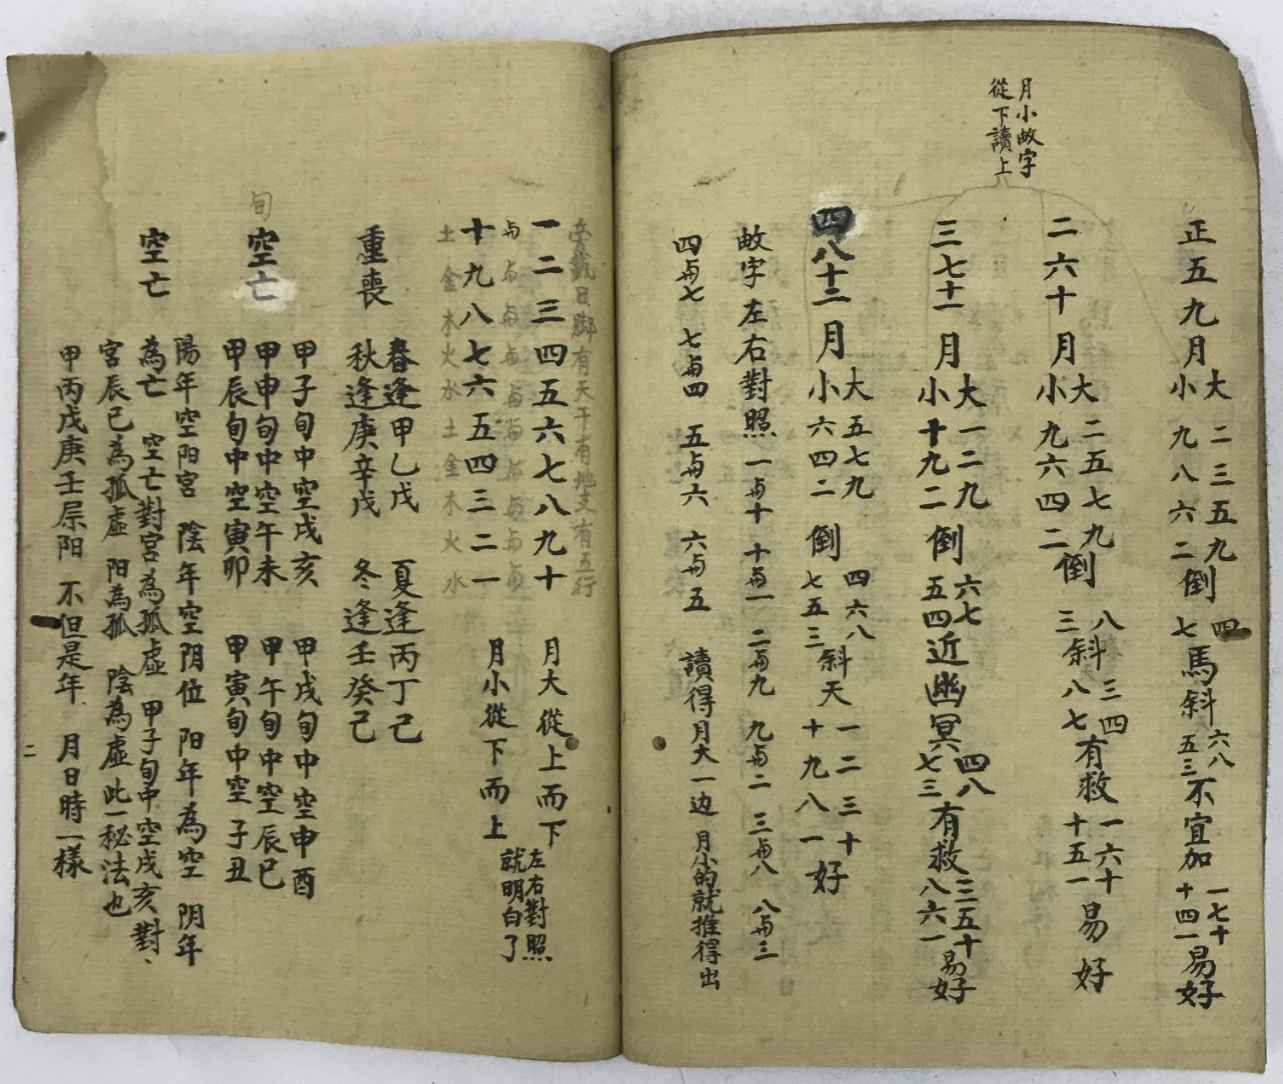 月小㪇字
從下讀上
正五九月 大 二三五九 小 九八六二 倒 四 七 馬斜 六八 五三 不宜加 一七十 十四一 易好
二六十月 大 二五七九 小 九六四二 倒 八 三 斜 三四 八七 有救 一六十 十五一 易好
三七十一月 大 一二九 小 十九二 倒 六七 五四 近幽冥 四八 七三 有救 三五十 八六一 易好
四八十二月 大 五七九 小 六四二 倒 四六八 七五三 斜天 一二三十 十九八一 好
㪇字左右對照 一与十 十与一 二与九 九与二 三与八 八与三
四与七 七与四 五与六 六与五 讀得月大一边 月小的就推得出
日脚有天干有地支有五行
一二三四五六七八九十 月大從上而下
与 与 与 与 与 与 与 与 与 与
十九八七六五四三二一 月小從下而上
左右對照
就明白了
土金木火水土金木火水
重喪
春逢甲乙戊 夏逢丙丁己
秋逢庚辛戊 冬逢壬癸己
旬
空亡
甲子旬中空戌亥 甲戌旬中空申酉
甲申旬中空午未 甲午旬中空辰巳
甲辰旬中空寅卯 甲寅旬中空子丑
空亡
陽年空阳宮 陰年空阴位 阳年為空 阴年
為亡 空亡對宮為孤虛 甲子旬中空戌亥 對、
宮辰巳為孤虛 阳為孤 陰為虛 此一秘法也
甲丙戊庚壬屬阳 不但是年 月日時一樣
二